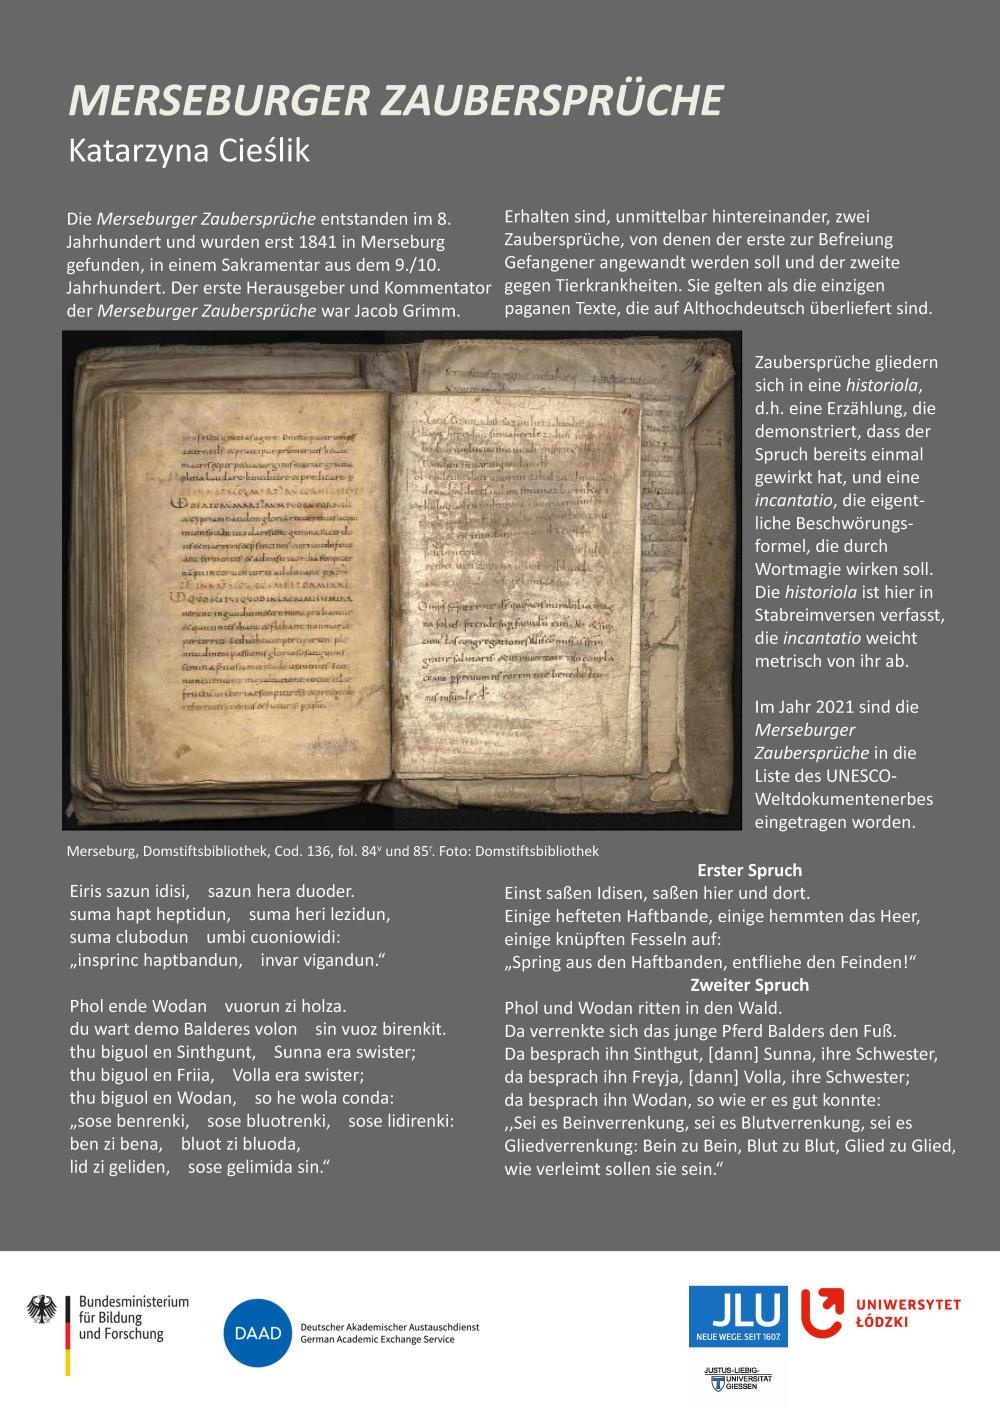 MERSEBURGER ZAUBERSPRÜCHE
Katarzyna Cieślik
Die Merseburger Zaubersprüche entstanden im 8.
Jahrhundert und wurden erst 1841 in Merseburg
gefunden, in einem Sakramentar aus dem 9./10.
Jahrhundert. Der erste Herausgeber und Kommentator
der Merseburger Zaubersprüche war Jacob Grimm.
Erhalten sind, unmittelbar hintereinander, zwei
Zaubersprüche, von denen der erste zur Befreiung
Gefangener angewandt werden soll und der zweite
gegen Tierkrankheiten. Sie gelten als die einzigen
paganen Texte, die auf Althochdeutsch überliefert sind.
Zaubersprüche gliedern
sich in eine historiola,
d.h. eine Erzählung, die
demonstriert, dass der
Spruch bereits einmal
gewirkt hat, und eine
incantatio, die eigent-
liche Beschwörungs-
formel, die durch
Wortmagie wirken soll.
Die historiola ist hier in
Stabreimversen verfasst,
die incantatio weicht
metrisch von ihr ab.
Im Jahr 2021 sind die
Merseburger
Zaubersprüche in die
Liste des UNESCO-
Weltdokumentenerbes
eingetragen worden.
Merseburg, Domstiftsbibliothek, Cod. 136, fol. 84v und 85r. Foto: Domstiftsbibliothek
Eiris sazun idisi, sazun hera duoder.
suma hapt heptidun, suma heri lezidun,
suma clubodun umbi cuoniowidi:
„insprinc haptbandun, invar vigandun.“
Phol ende Wodan vuorun zi holza.
du wart demo Balderes volon sin vuoz birenkit.
thu biguol en Sinthgunt, Sunna era swister;
thu biguol en Friia, Volla era swister;
thu biguol en Wodan, so he wola conda:
„sose benrenki, sose bluotrenki, sose lidirenki:
ben zi bena, bluot zi bluoda,
lid zi geliden, sose gelimida sin.“
Erster Spruch
Einst saßen Idisen, saßen hier und dort.
Einige hefteten Haftbande, einige hemmten das Heer,
einige knüpften Fesseln auf:
„Spring aus den Haftbanden, entfliehe den Feinden!“
Zweiter Spruch
Phol und Wodan ritten in den Wald.
Da verrenkte sich das junge Pferd Balders den Fuß.
Da besprach ihn Sinthgut, [dann] Sunna, ihre Schwester,
da besprach ihn Freyja, [dann] Volla, ihre Schwester;
da besprach ihn Wodan, so wie er es gut konnte:
,,Sei es Beinverrenkung, sei es Blutverrenkung, sei es
Gliedverrenkung: Bein zu Bein, Blut zu Blut, Glied zu Glied,
wie verleimt sollen sie sein.“
Bundesministerium
für Bildung
und Forschung
DAAD
Deutscher Akademischer Austauschdienst
German Academic Exchange Service
JLU
NEUE WEGE. SEIT 1607.
JUSTUS-LIEBIG-
UNIVERSITÄT
GIESSEN
UNIWERSYTET
ŁÓDZKI